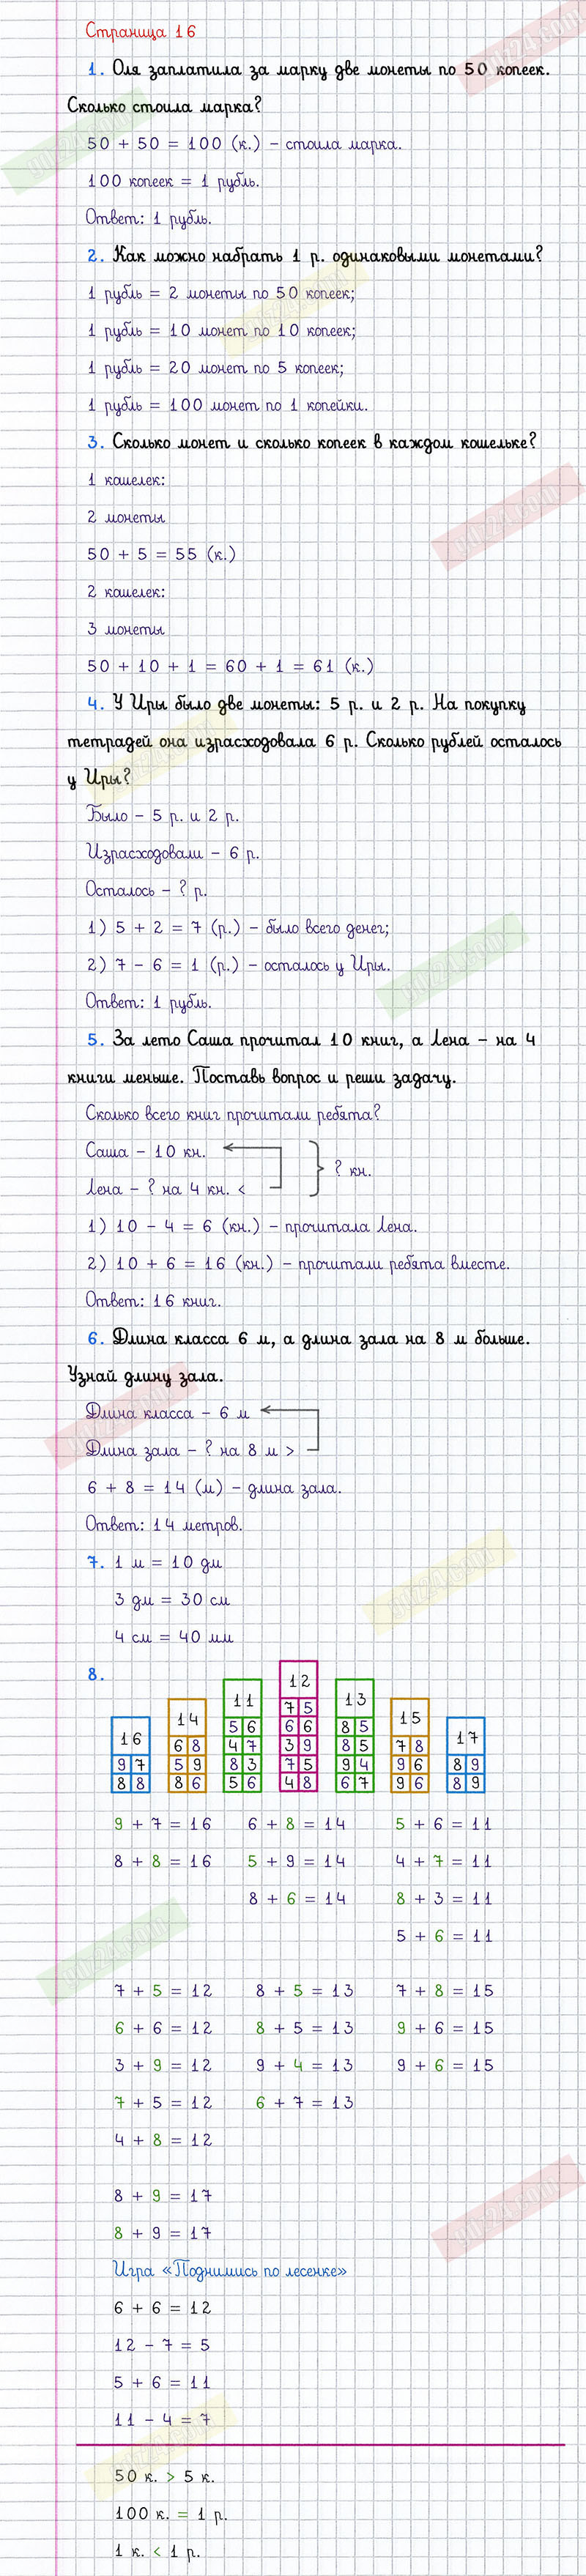 Страница 16
1. Оля заплатила за марку две монеты по 50 копеек.
Сколько стоила марка?
50 + 50 = 100 (к.) – стоила марка.
100 копеек = 1 рубль.
Ответ: 1 рубль.
2. Как можно набрать 1 р. одинаковыми монетами?
1 рубль = 2 монеты по 50 копеек;
1 рубль = 10 монет по 10 копеек;
1 рубль = 20 монет по 5 копеек;
1 рубль = 100 монет по 1 копейки.
3. Сколько монет и сколько копеек в каждом кошельке?
1 кошелек:
2 монеты
50 + 5 = 55 (к.)
2 кошелек:
3 монеты
50 + 10 + 1 = 60 + 1 = 61 (к.)
4. У Иры было две монеты: 5 р. и 2 р. На покупку
тетрадей она израсходовала 6 р. Сколько рублей осталось
у Иры?
Было – 5 р. и 2 р.
Израсходовали – 6 р.
Осталось – ? р.
1) 5 + 2 = 7 (р.) – было всего денег;
2) 7 – 6 = 1 (р.) – осталось у Иры.
Ответ: 1 рубль.
5. За лето Саша прочитал 10 книг, а Лена – на 4
книги меньше. Поставь вопрос и реши задачу.
Сколько всего книг прочитали ребята?
Саша – 10 кн.
? кн.
Лена – ? на 4 кн. <
1) 10 – 4 = 6 (кн.) – прочитала Лена.
2) 10 + 6 = 16 (кн.) – прочитали ребята вместе.
Ответ: 16 книг.
6. Длина класса 6 м, а длина зала на 8 м больше.
Узнай длину зала.
Длина класса – 6 м
Длина зала – ? на 8 м >
6 + 8 = 14 (м) – длина зала.
Ответ: 14 метров.
7. 1 м = 10 дм
3 дм = 30 см
4 см = 40 мм
8.
16
9 7
8 8
14
6 8
5 9
8 6
11
5 6
4 7
8 3
5 6
12
7 5
6 6
3 9
7 5
4 8
13
8 5
8 5
9 4
6 7
15
7 8
9 6
9 6
17
8 9
8 9
9 + 7 = 16 6 + 8 = 14 5 + 6 = 11
8 + 8 = 16 5 + 9 = 14 4 + 7 = 11
8 + 6 = 14 8 + 3 = 11
5 + 6 = 11
7 + 5 = 12 8 + 5 = 13 7 + 8 = 15
6 + 6 = 12 8 + 5 = 13 9 + 6 = 15
3 + 9 = 12 9 + 4 = 13 9 + 6 = 15
7 + 5 = 12 6 + 7 = 13
4 + 8 = 12
8 + 9 = 17
8 + 9 = 17
Игра «Поднимись по лесенке»
6 + 6 = 12
12 – 7 = 5
5 + 6 = 11
11 – 4 = 7
50 к. > 5 к.
100 к. = 1 р.
1 к. < 1 р.